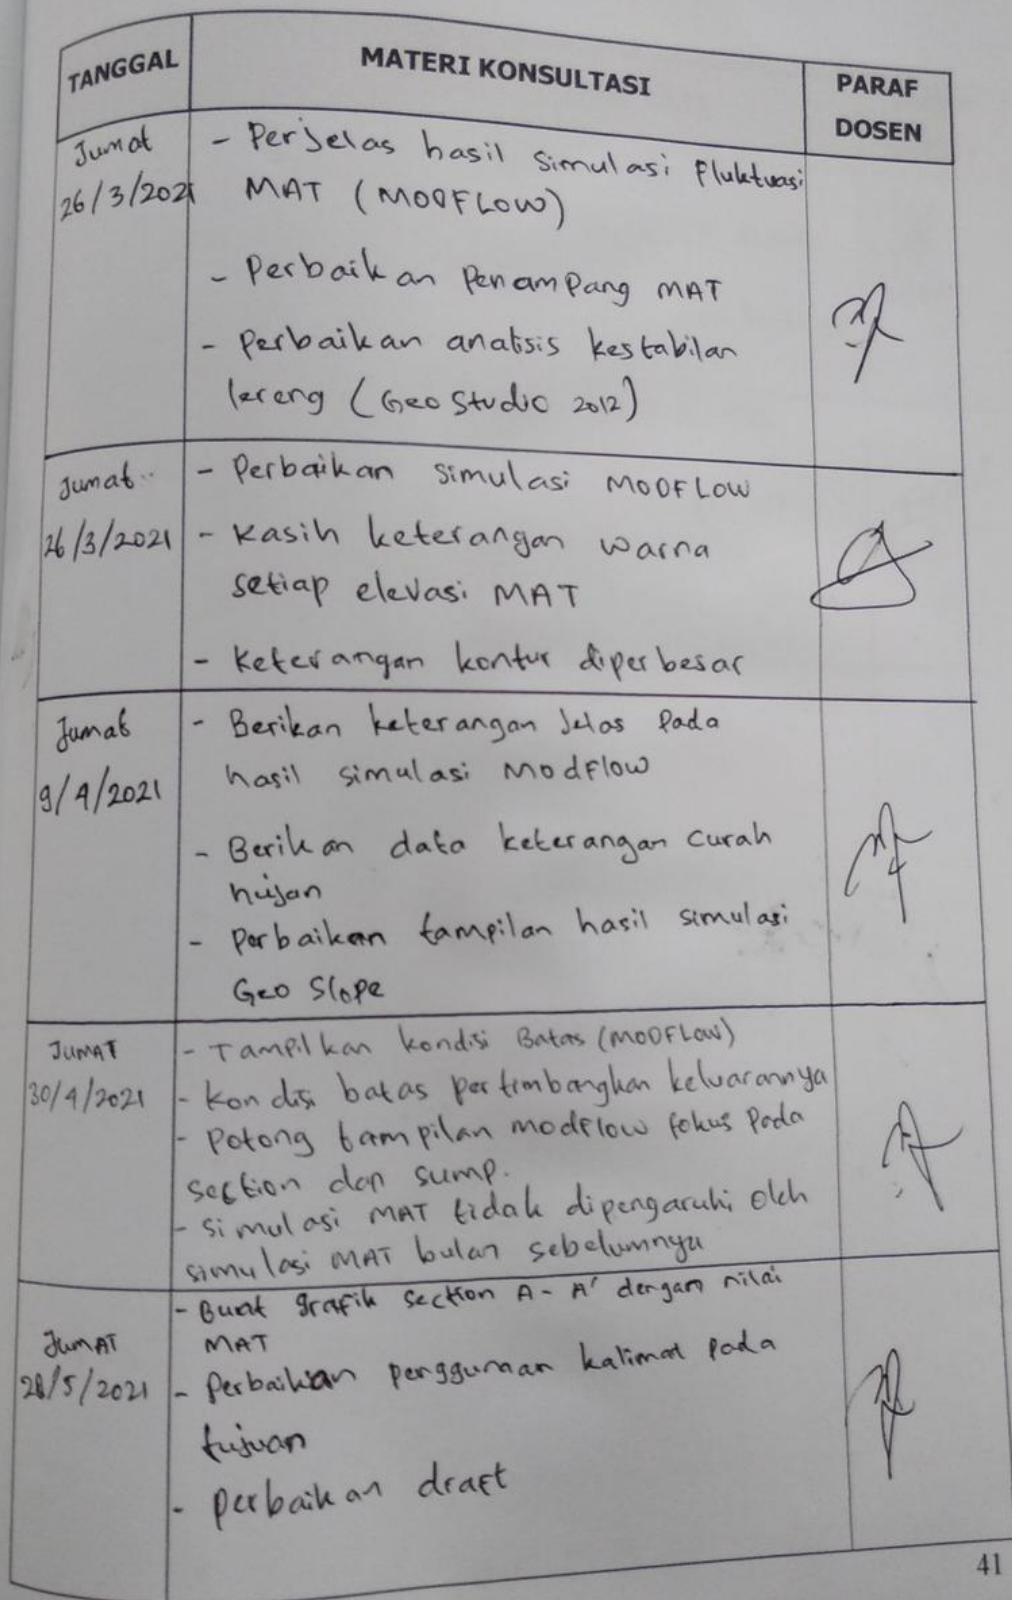 TANGGAL MATERI KONSULTASI PARAF DOSEN
Jumat
26/3/2021
- Perjelas hasil simulasi fluktuasi
MAT (MODFLOW)
- Perbaikan Penampang MAT
- Perbaikan analisis kestabilan
lereng (Geo Studio 2012)
Jumat
26/3/2021
- Perbaikan simulasi MODFLOW
- Kasih keterangan warna
setiap elevasi MAT
- Keterangan kontur diperbesar
Jumat
9/4/2021
- Berikan keterangan Jelas pada
hasil simulasi Modflow
- Berikan data keterangan curah
hujan
- Perbaikan tampilan hasil simulasi
Geo Slope
JUMAT
30/4/2021
- Tampilkan kondisi Batas (MODFLOW)
- Kondisi batas pertimbangkan keluarannya
- Potong tampilan modflow fokus Pada
section dan sump.
- Simulasi MAT tidak dipengaruhi oleh
simulasi MAT bulan sebelumnya
JUMAT
28/5/2021
- Buat grafik section A - A' dengan nilai
MAT
- Perbaikan penggunaan kalimat pada
tujuan
- perbaikan draft
41